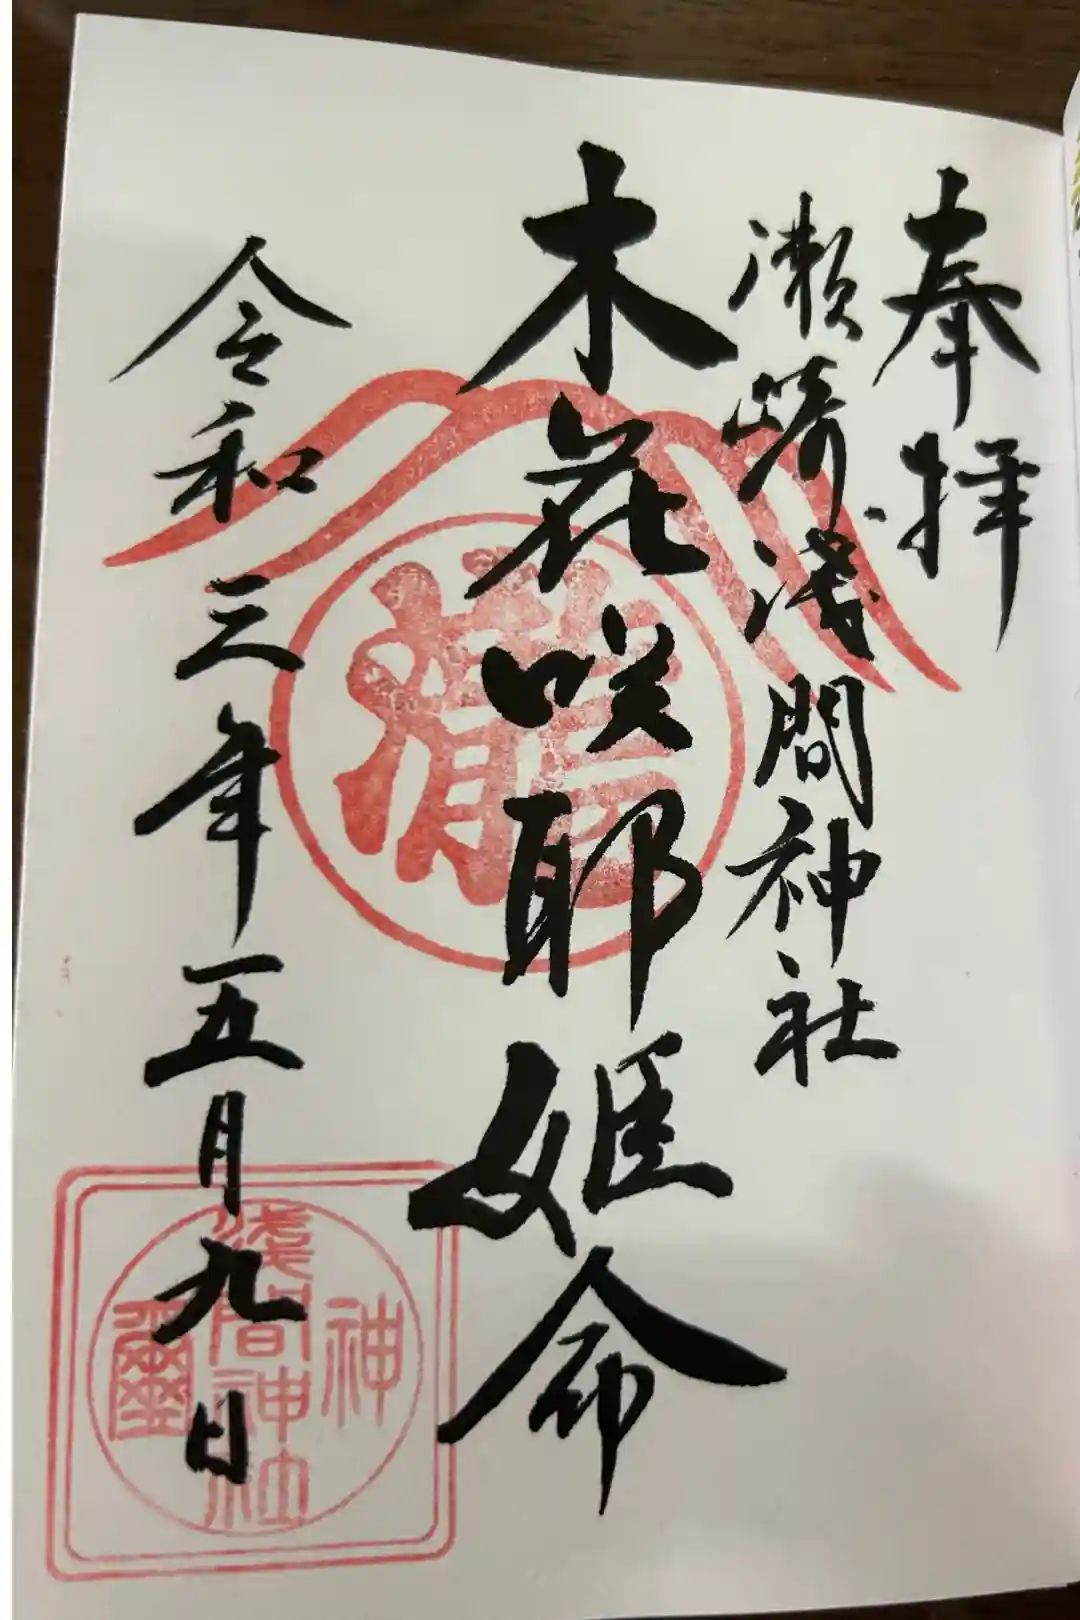 奉拝
瀬﨑淺間神社
木花咲耶姫命
令和三年五月九日
淺間神社
神
璽